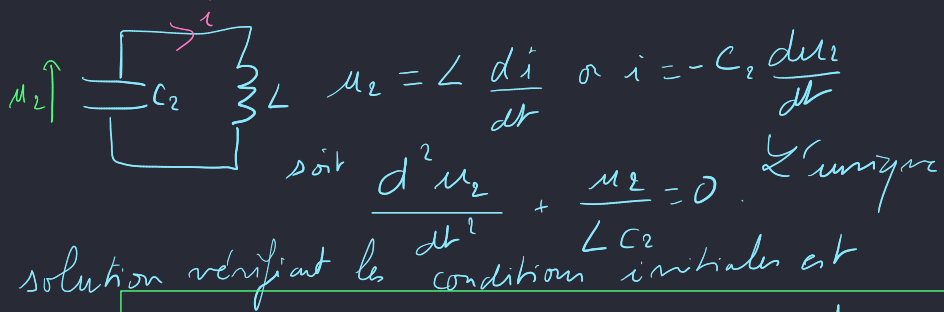 i
u₂ C₂ L u₂ = L di/dt or i = -C₂ du₂/dt
soit d²u₂/dt² + u₂/(LC₂) = 0. L'unique
solution vérifiant les conditions initiales est